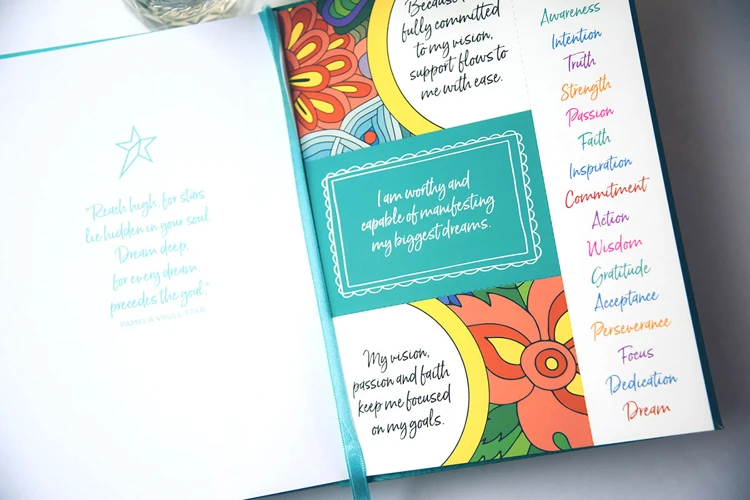 "Reach high, for stars
lie hidden in your soul.
Dream deep,
for every dream
precedes the goal."
PAMELA VAULL STAR
Because I
fully committed
to my vision,
support flows to
me with ease.
I am worthy and
capable of manifesting
my biggest dreams.
My vision,
passion and faith
keep me focused
on my goals.
Awareness
Intention
Truth
Strength
Passion
Faith
Inspiration
Commitment
Action
Wisdom
Gratitude
Acceptance
Perseverance
Focus
Dedication
Dream